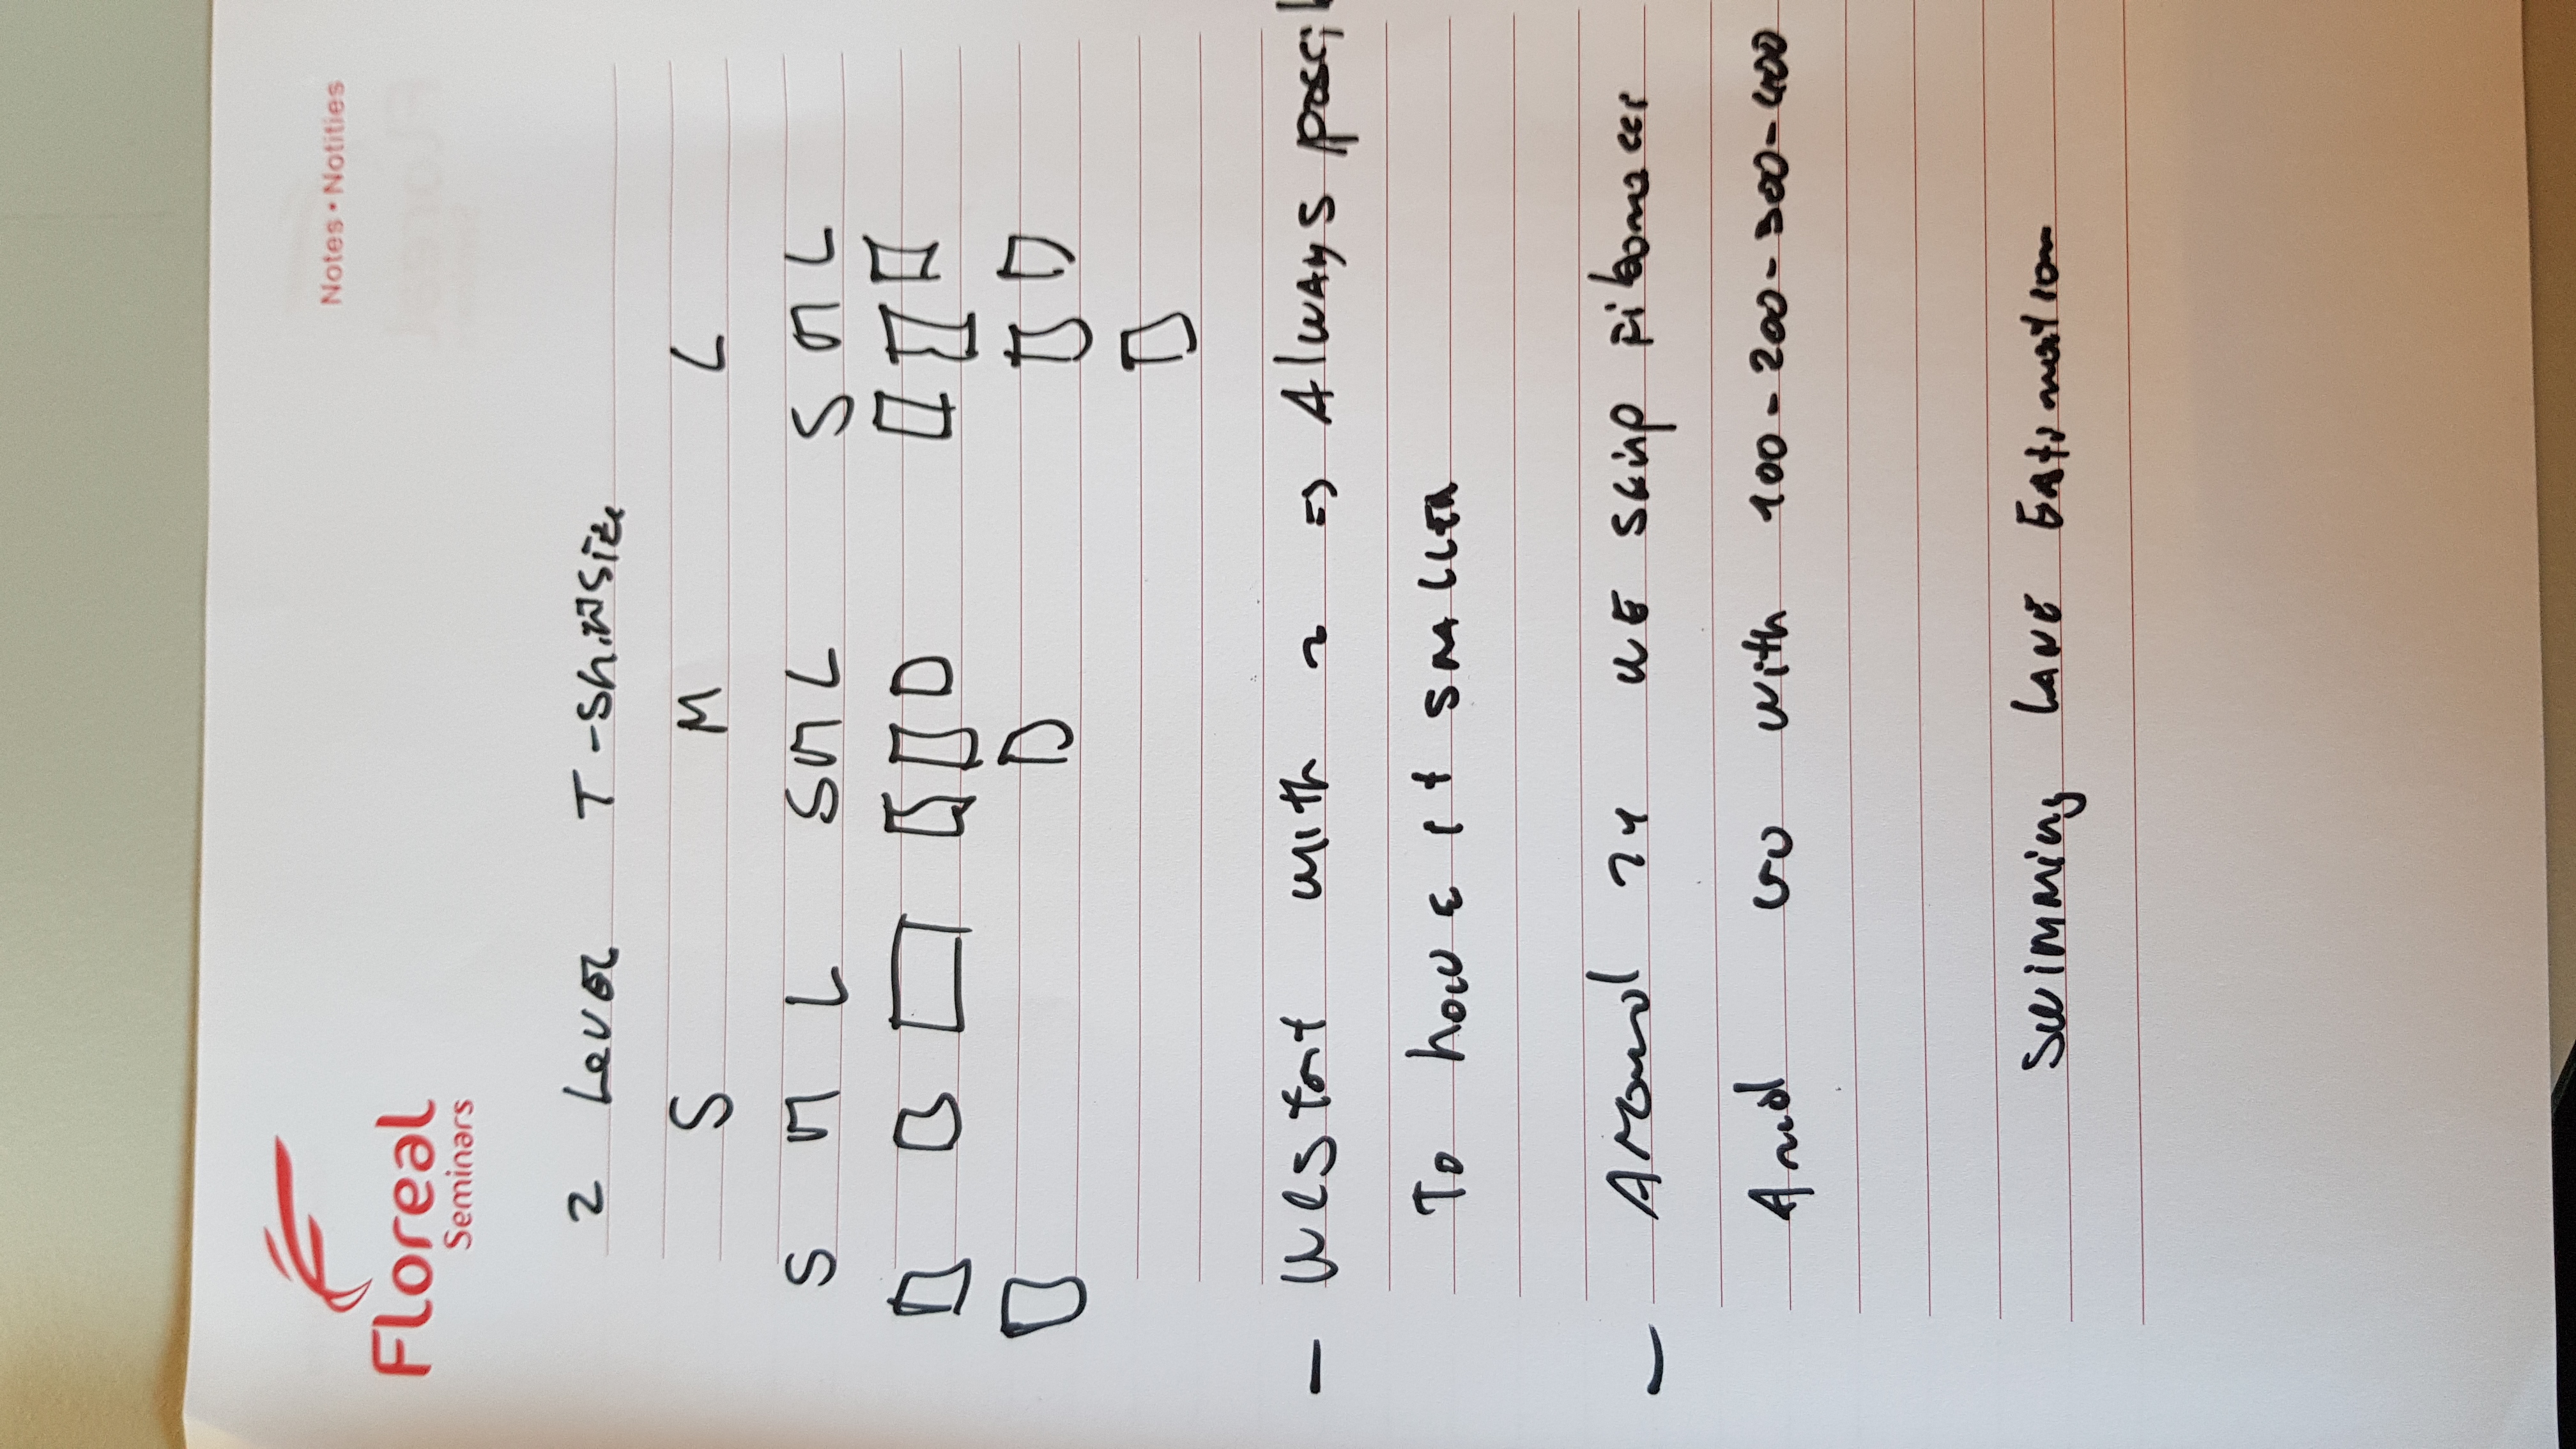 Floreal
Seminars
Notes • Notities
2 Level T-shirtsize
S M L
S M L S M L S M L
- We start with 2 => Always possib
To have it smaller
- Around 24 we skip Fibonacci
And Go with 100-200-300-400
Swimming Lane Estimation